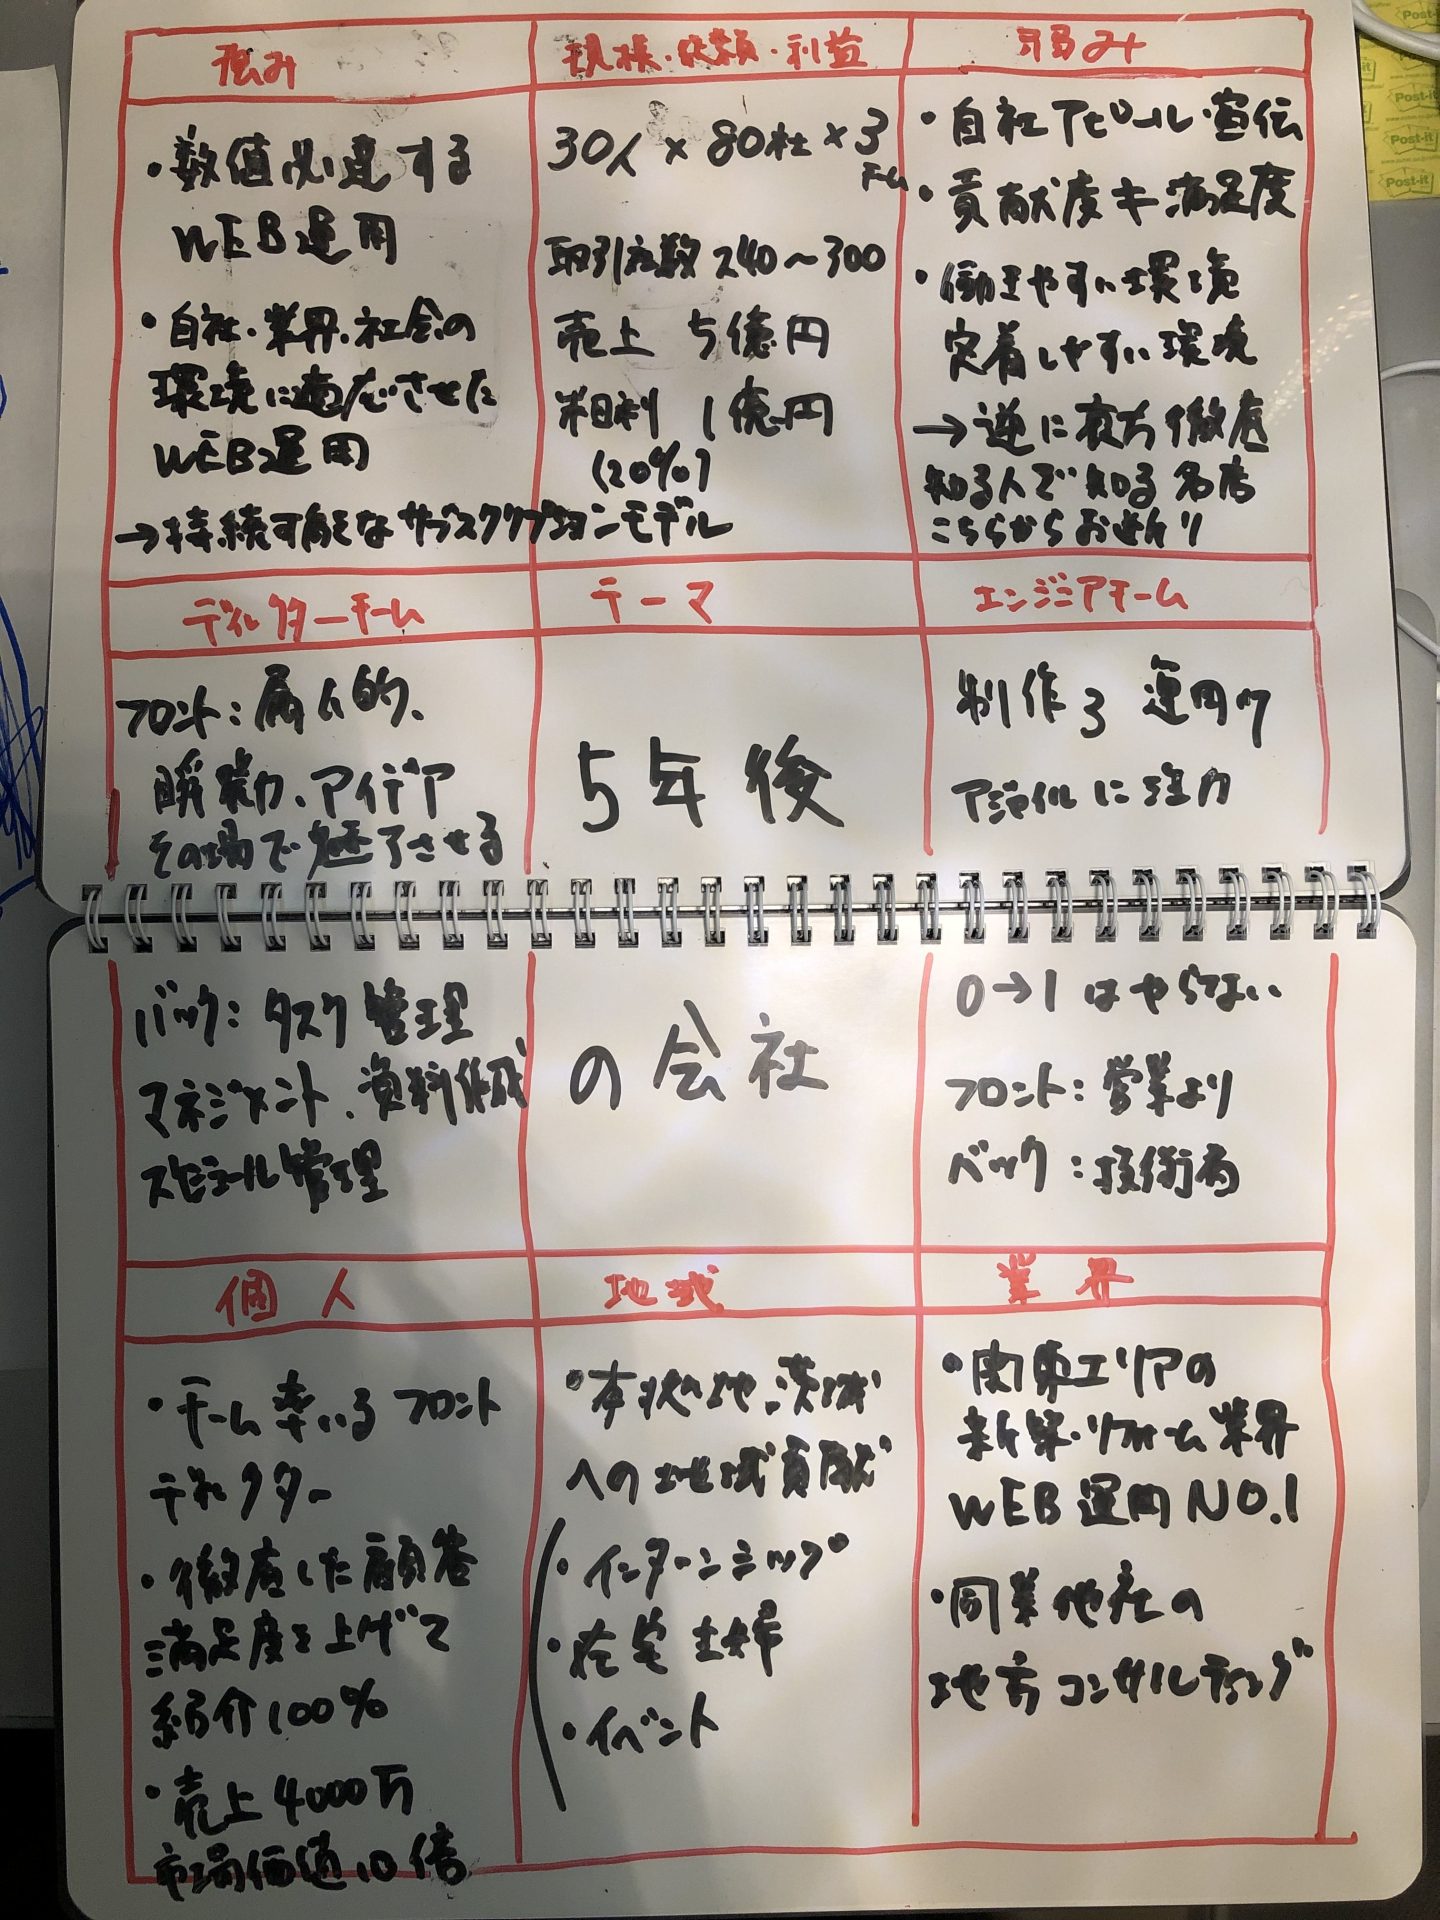 強み
・数値必達する
WEB運用
・自社・業界・社会の
環境に適応させた
WEB運用
→持続可能なサブスクリプションモデル
規模・依頼・利益
30人×80社×3
チーム
取引店数240〜300
売上 5億円
粗利 1億円
(20%)
弱み
・自社アピール・宣伝
・貢献度≠満足度
・働きやすい環境
定着しやすい環境
→逆に夜方徹底
知る人ぞ知る名店
こちらからお断り
ディレクターチーム
フロント:属人的、
瞬発力、アイデア
その場で魅了させる
バック:タスク管理
マネジメント、資料作成
スケジュール管理
テーマ
5年後
の会社
エンジニアチーム
制作3 運用7
アジャイルに注力
0→1はやらない
フロント:営業より
バック:技術者
個人
・チーム率いるフロント
ディレクター
・徹底した顧客
満足度を上げて
紹介100%
・売上4000万
市場価値10倍
地域
・本拠地、茨城
への地域貢献
・インターンシップ
・在宅主婦
・イベント
業界
・関東エリアの
新築・リフォーム業界
WEB運用NO.1
・同業他社の
地方コンサルティング
Post-it
Post-it
Post-it